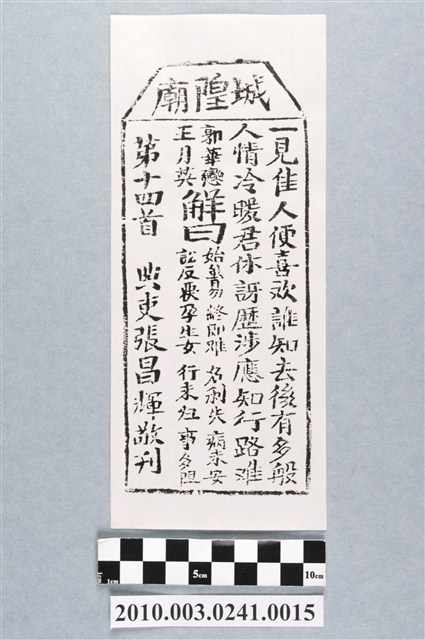 城隍廟
一見佳人便喜欢誰知去後有多般
人情冷暖君休訝歷涉應知行路难
郭華戀
王月英
解曰
始虽易 終則难 名利失 病未安
訟反覆孕生女 行未归 事多阻
第十四首 典吏張昌輝敬刊
1cm 5cm 10cm
2010.003.0241.0015